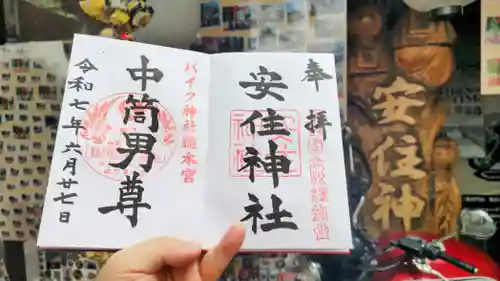 奉拝
安住神社
バイク神社総本宮
中筒男尊
令和七年六月廿七日
安住神